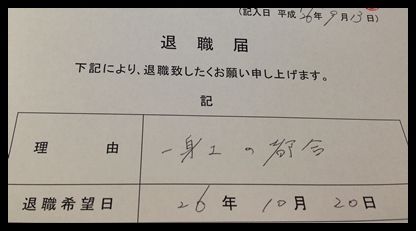 (記入日 平成 26年 9月 13日)
退職届
下記により、退職致したくお願い申し上げます。
記
理由 一身上の都合
退職希望日 26年 10月 20日